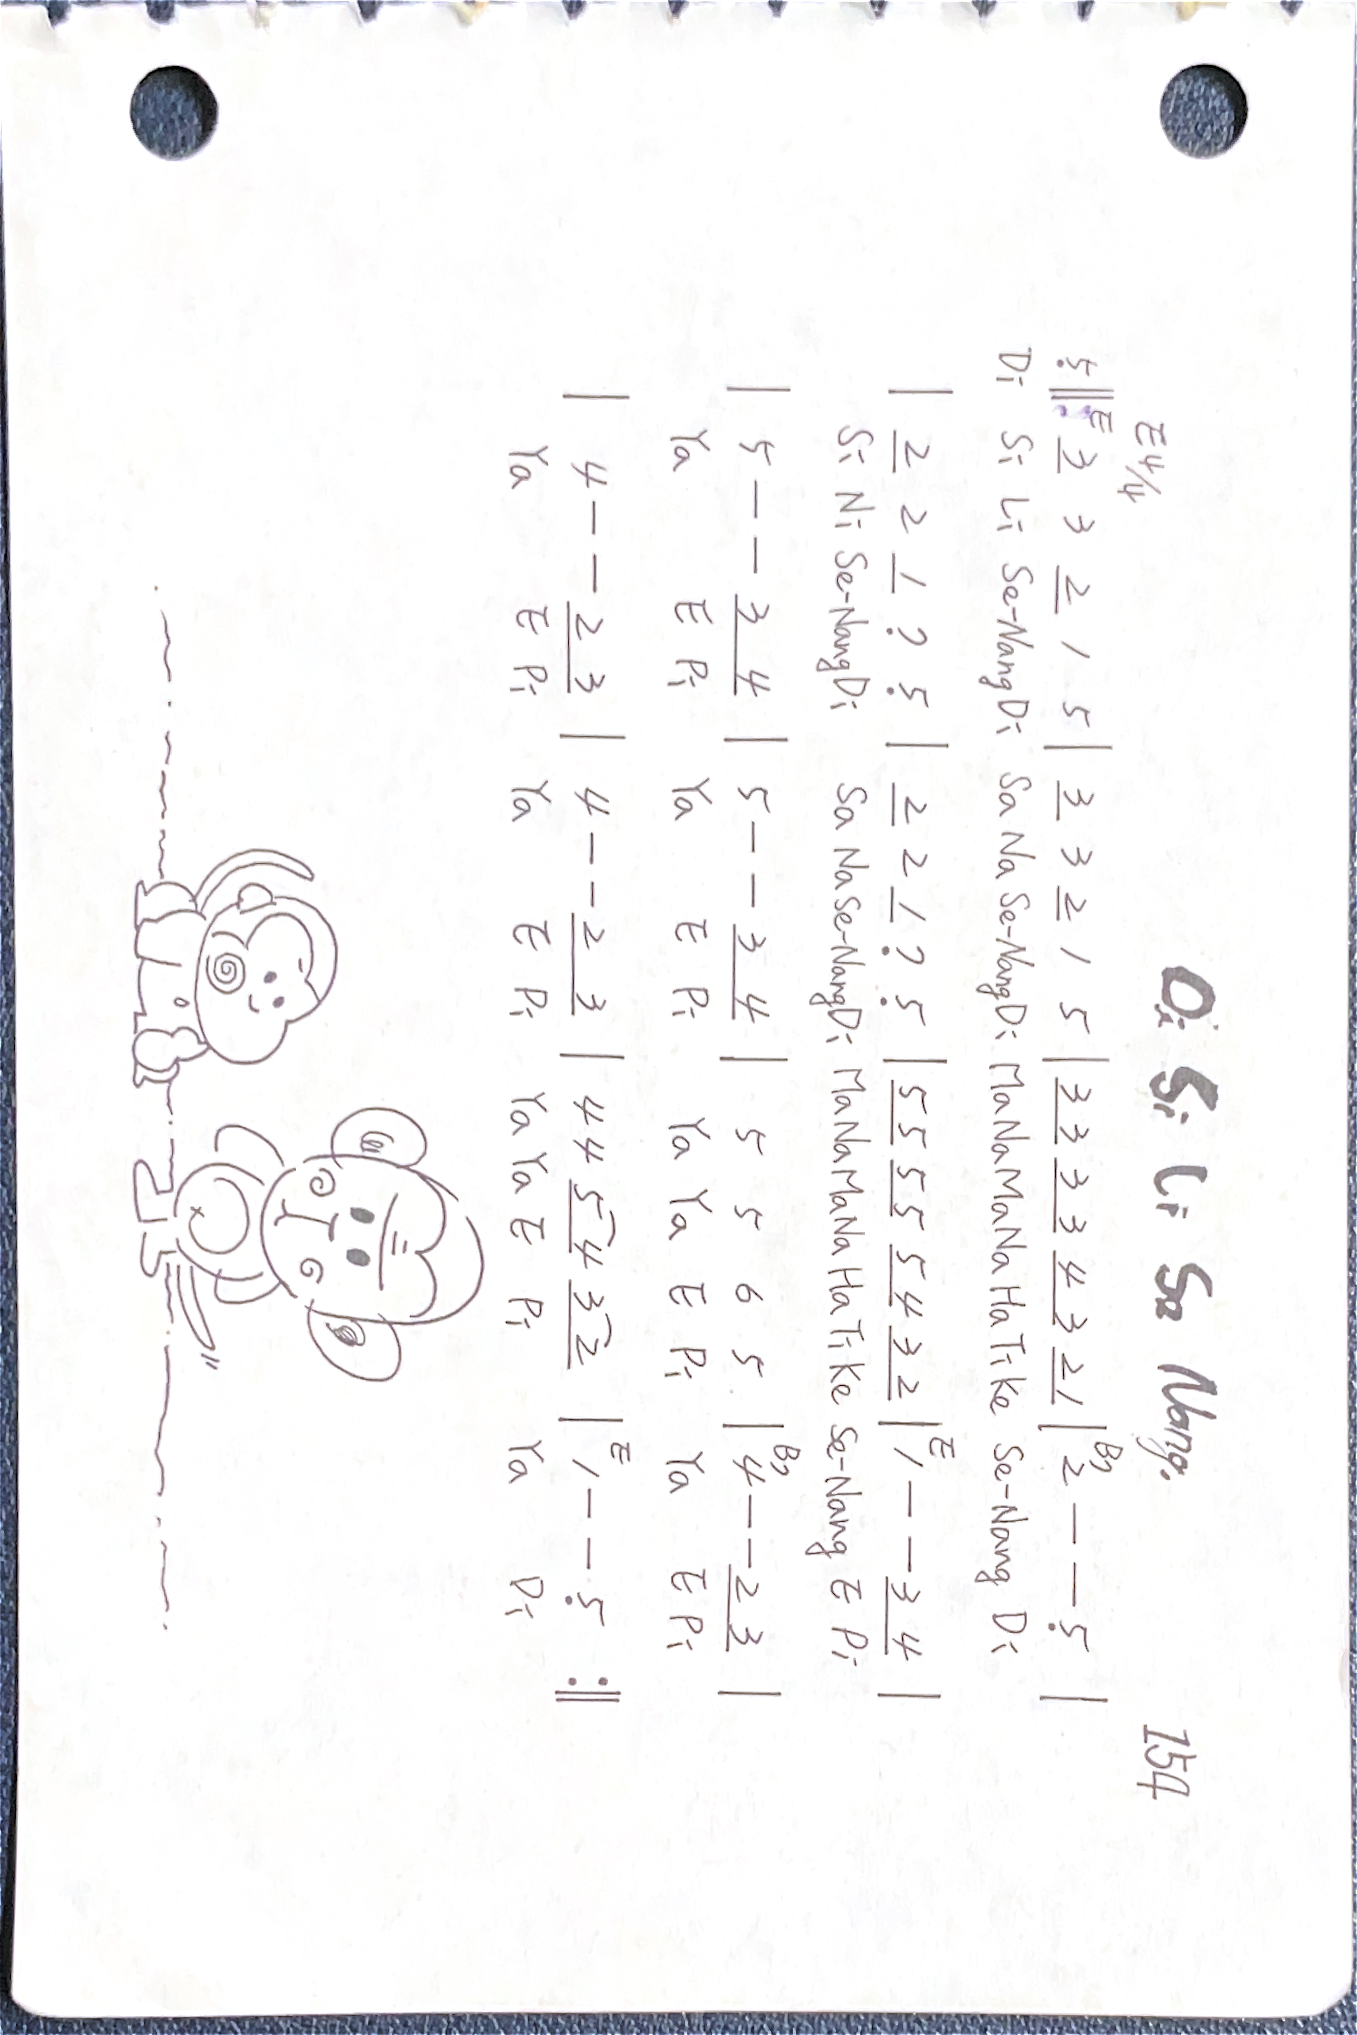 Di Si Li Se Nang.
154
E 4/4
5 ‖: E 3 3 2 1 5 | 3 3 2 1 5 | 3 3 3 3 4 3 2 1 | B7 2 — — 5 |
Di Si Li Se-Nang Di Sa Na Se-Nang Di Ma Na Ma Na Ha Ti Ke Se-Nang Di
| 2 2 1 7 5 | 2 2 1 7 5 | 5 5 5 5 5 4 3 2 | E 1 — — 3 4 |
Si Ni Se-Nang Di Sa Na Se-Nang Di Ma Na Ma Na Ha Ti Ke Se-Nang E Pi
| 5 — — 3 4 | 5 — — 3 4 | 5 5 6 5 | B7 4 — — 2 3 |
Ya E Pi Ya E Pi Ya Ya E Pi Ya E Pi
| 4 — — 2 3 | 4 — — 2 3 | 4 4 5 4 3 2 | E 1 — — 5 :‖
Ya E Pi Ya E Pi Ya Ya E Pi Ya Di